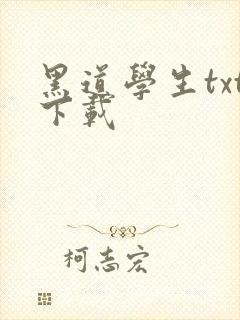 黑道學生txt
下載
柯志宏